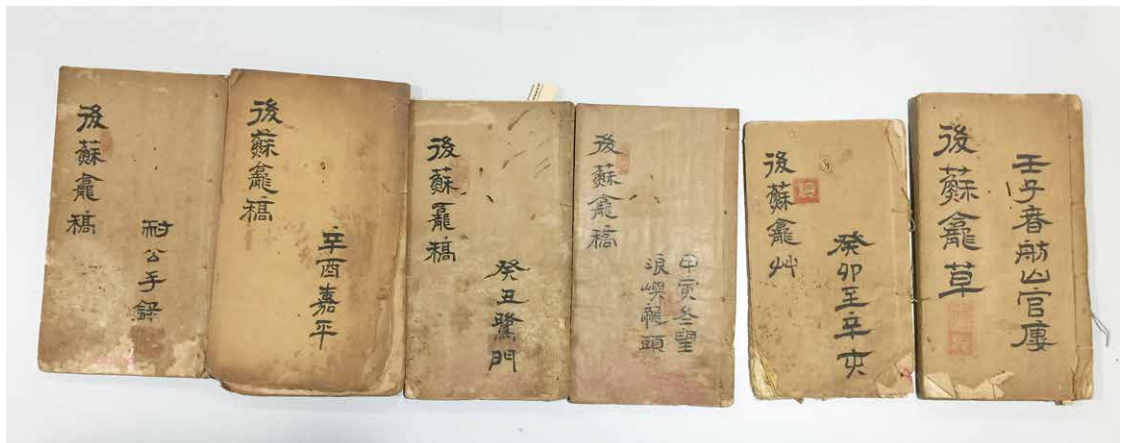 後蘇龕稿
耐公手錄
後蘇龕稿
辛酉嘉平
後蘇龕稿
癸丑鷺門
後蘇龕稿
甲寅冬望
浪嶼龍頭
後蘇龕艸
癸卯至辛亥
後蘇龕草
壬子春舫山官廔